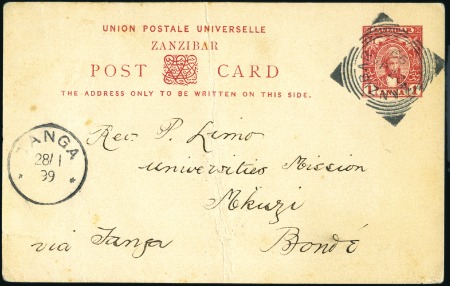 UNION POSTALE UNIVERSELLE
ZANZIBAR
POST CARD
THE ADDRESS ONLY TO BE WRITTEN ON THIS SIDE.
ZANZIBAR
1 ANNA 1
TANGA
28/1
99
Rev. P. Limo
Universities Mission
Mkuzi
via Tanga
Bondé